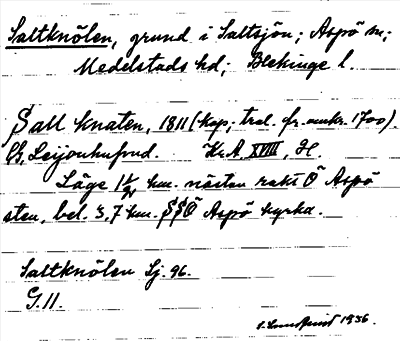 Saltknölen, grund i Saltsjön; Aspö sn;
Medelstads hd; Blekinge l.
Salt Knaten, 1811 (kop; trol. fr. omkr. 1700).
G. Leijonhufvud. KrA XVIII, H.
Läge 1 1/4 km. nästan rakt Ö Aspö
sten, bel. 3,7 km. SSÖ Aspö kyrka.
Saltknölen Lj. 96.
G. 11.
1936.